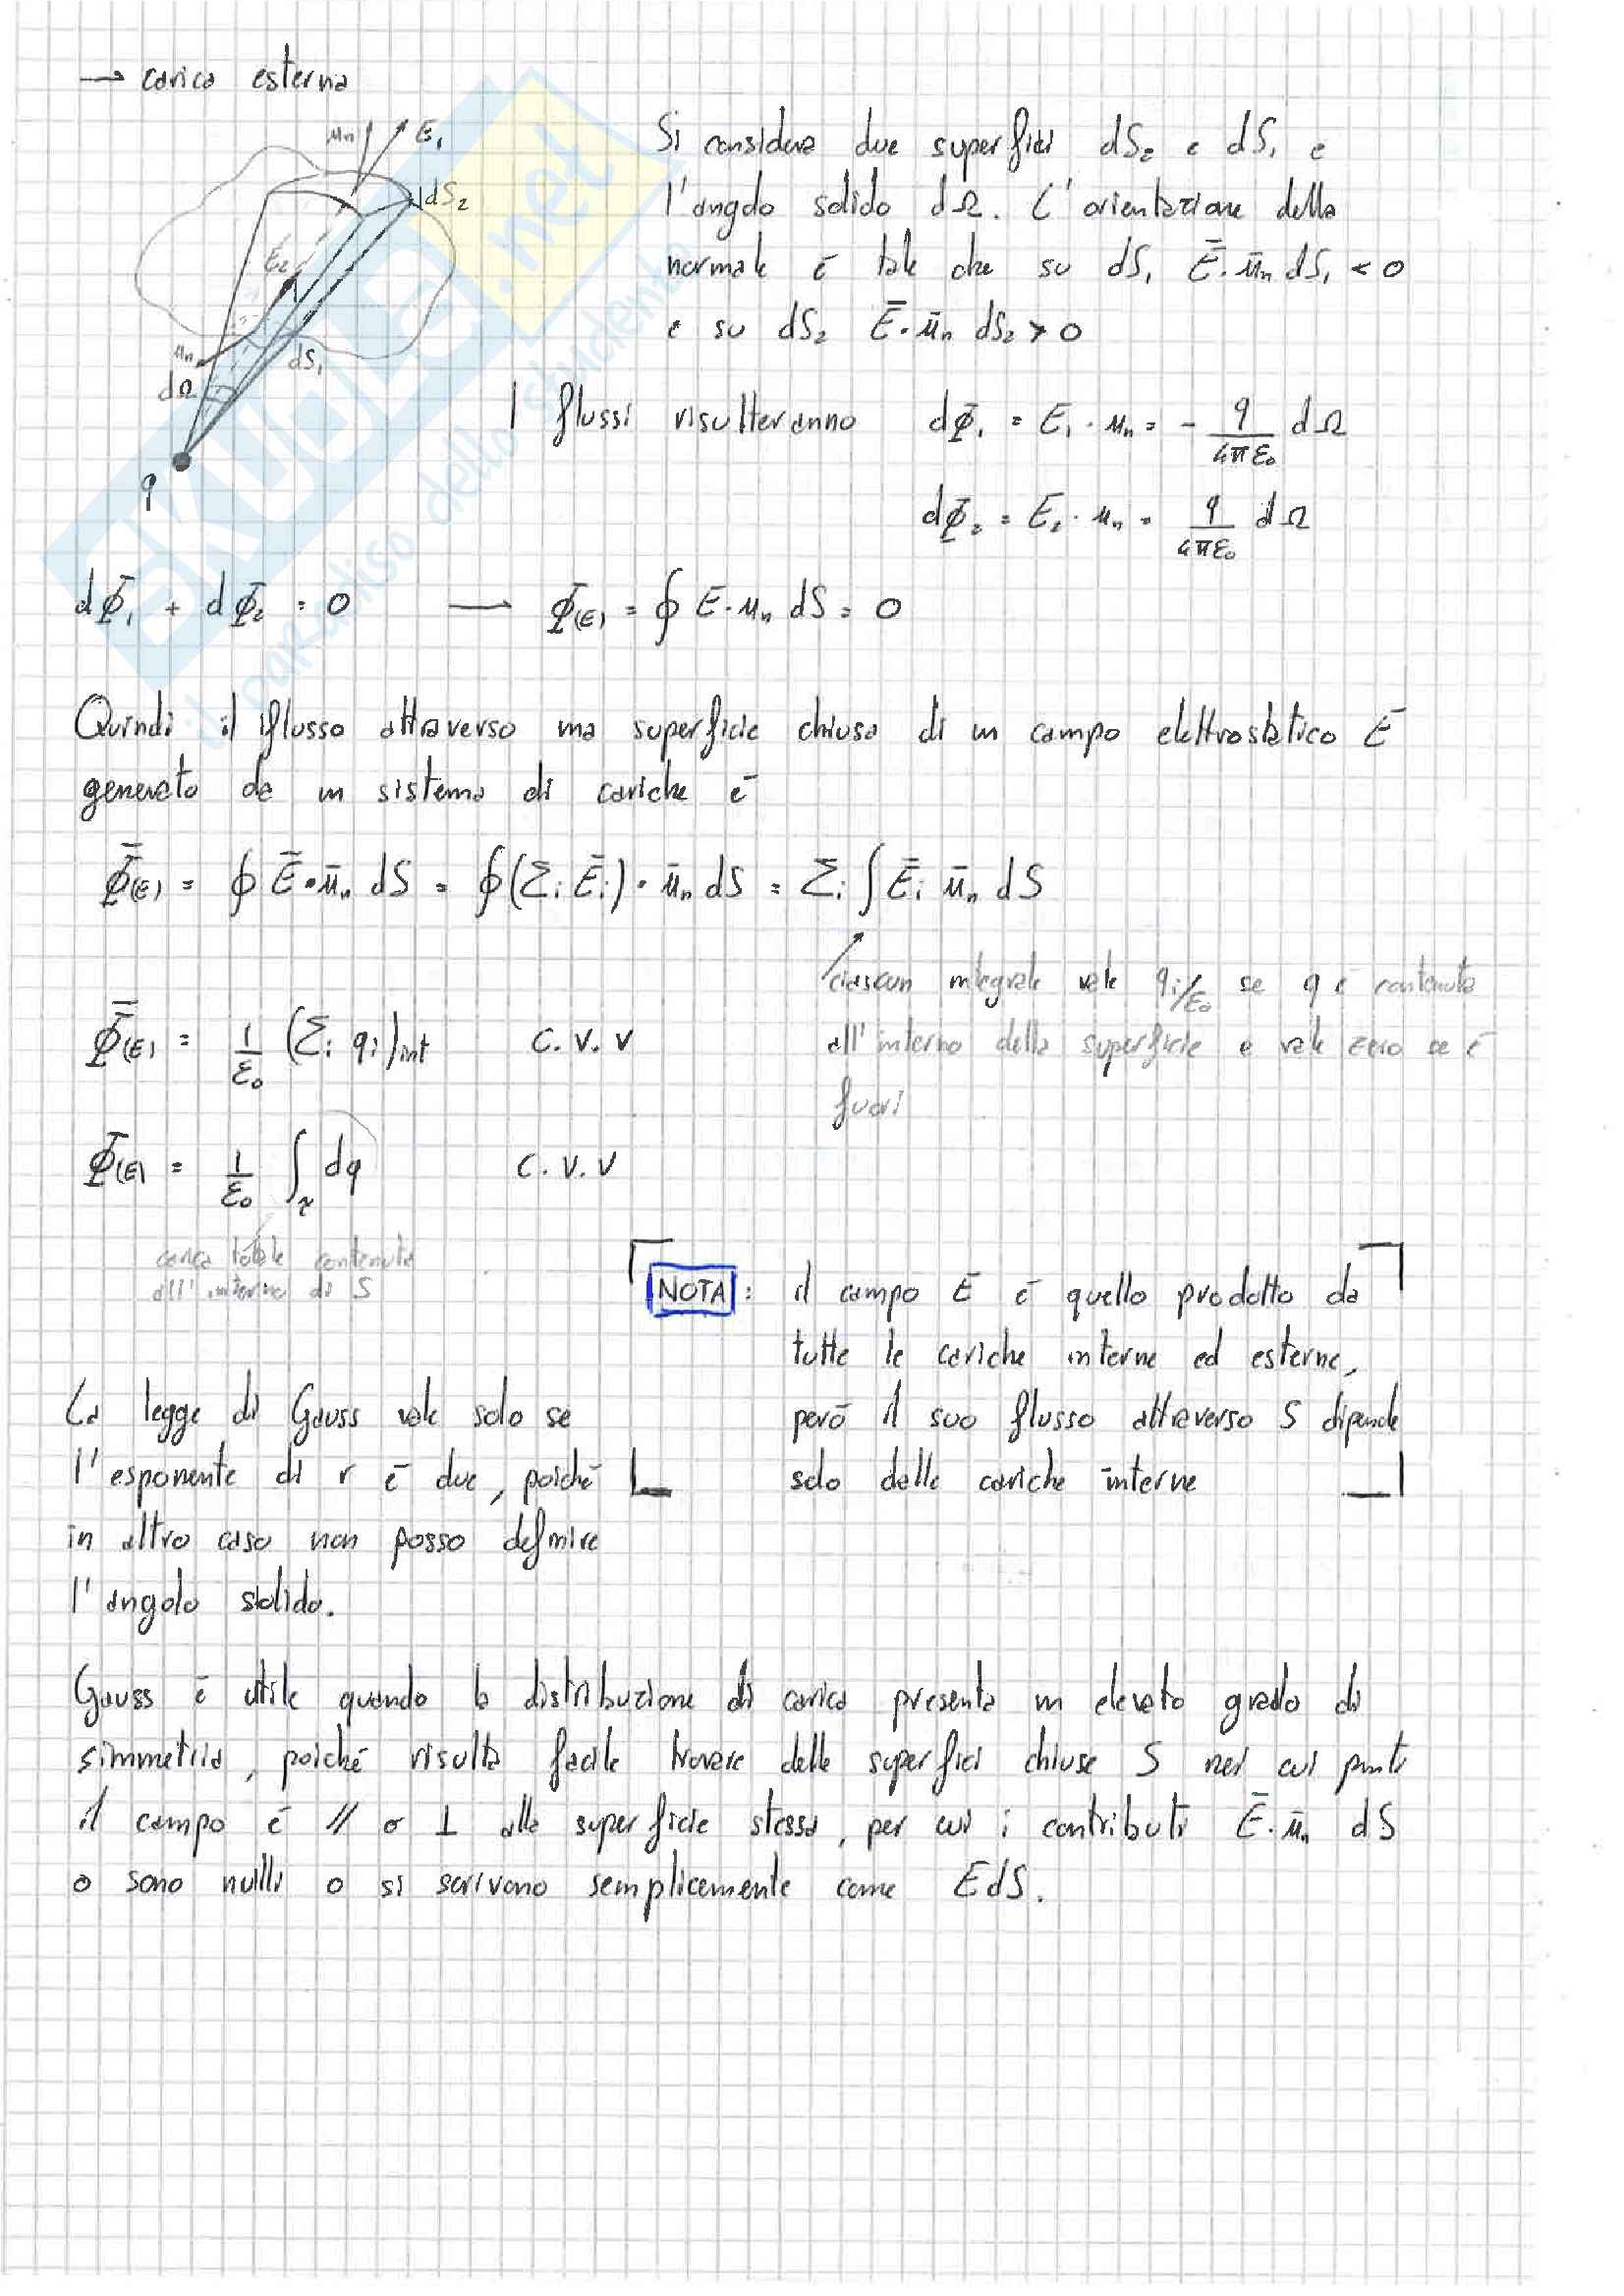 → carica esterna
Si considera due superfici dS₂ e dS₁ e
l'angolo solido dΩ. L'orientazione della
normale è tale che su dS₁ Ē·ūₙ dS₁ < 0
e su dS₂ Ē·ūₙ dS₂ > 0
uₙ E₁
dS₂
E₂
uₙ dS₁
dΩ
q
I flussi risulteranno dΦ₁ = E₁·uₙ = - q/4πε₀ dΩ
dΦ₂ = E₂·uₙ = q/4πε₀ dΩ
dΦ₁ + dΦ₂ = 0 → Φ(E) = ∮ E·uₙ dS = 0
Quindi il flusso attraverso una superficie chiusa di un campo elettrostatico Ē
generato da un sistema di cariche è
Φ̄(E) = ∮ Ē·ūₙ dS = ∮(Σᵢ Ēᵢ)·ūₙ dS = Σᵢ ∫ Ēᵢ ūₙ dS
ciascun integrale vale qᵢ/ε₀ se q è contenuta
all'interno della superficie e vale zero se è
fuori
Φ̄(E) = 1/ε₀ (Σᵢ qᵢ)int C.V.V
Φ(E) = 1/ε₀ ∫τ dq C.V.V
carica totale contenuta
all'interno di S
NOTA: il campo E è quello prodotto da
tutte le cariche interne ed esterne,
però il suo flusso attraverso S dipende
solo dalle cariche interne
La legge di Gauss vale solo se
l'esponente di r è due, poiché
in altro caso non posso definire
l'angolo solido.
Gauss è utile quando la distribuzione di carica presenta un elevato grado di
simmetria, poiché risulta facile trovare delle superfici chiuse S nei cui punti
il campo è // o ⊥ alla superficie stessa, per cui i contributi Ē·ūₙ dS
o sono nulli o si scrivono semplicemente come EdS.
SKUOLA.net
il paradiso dello studente